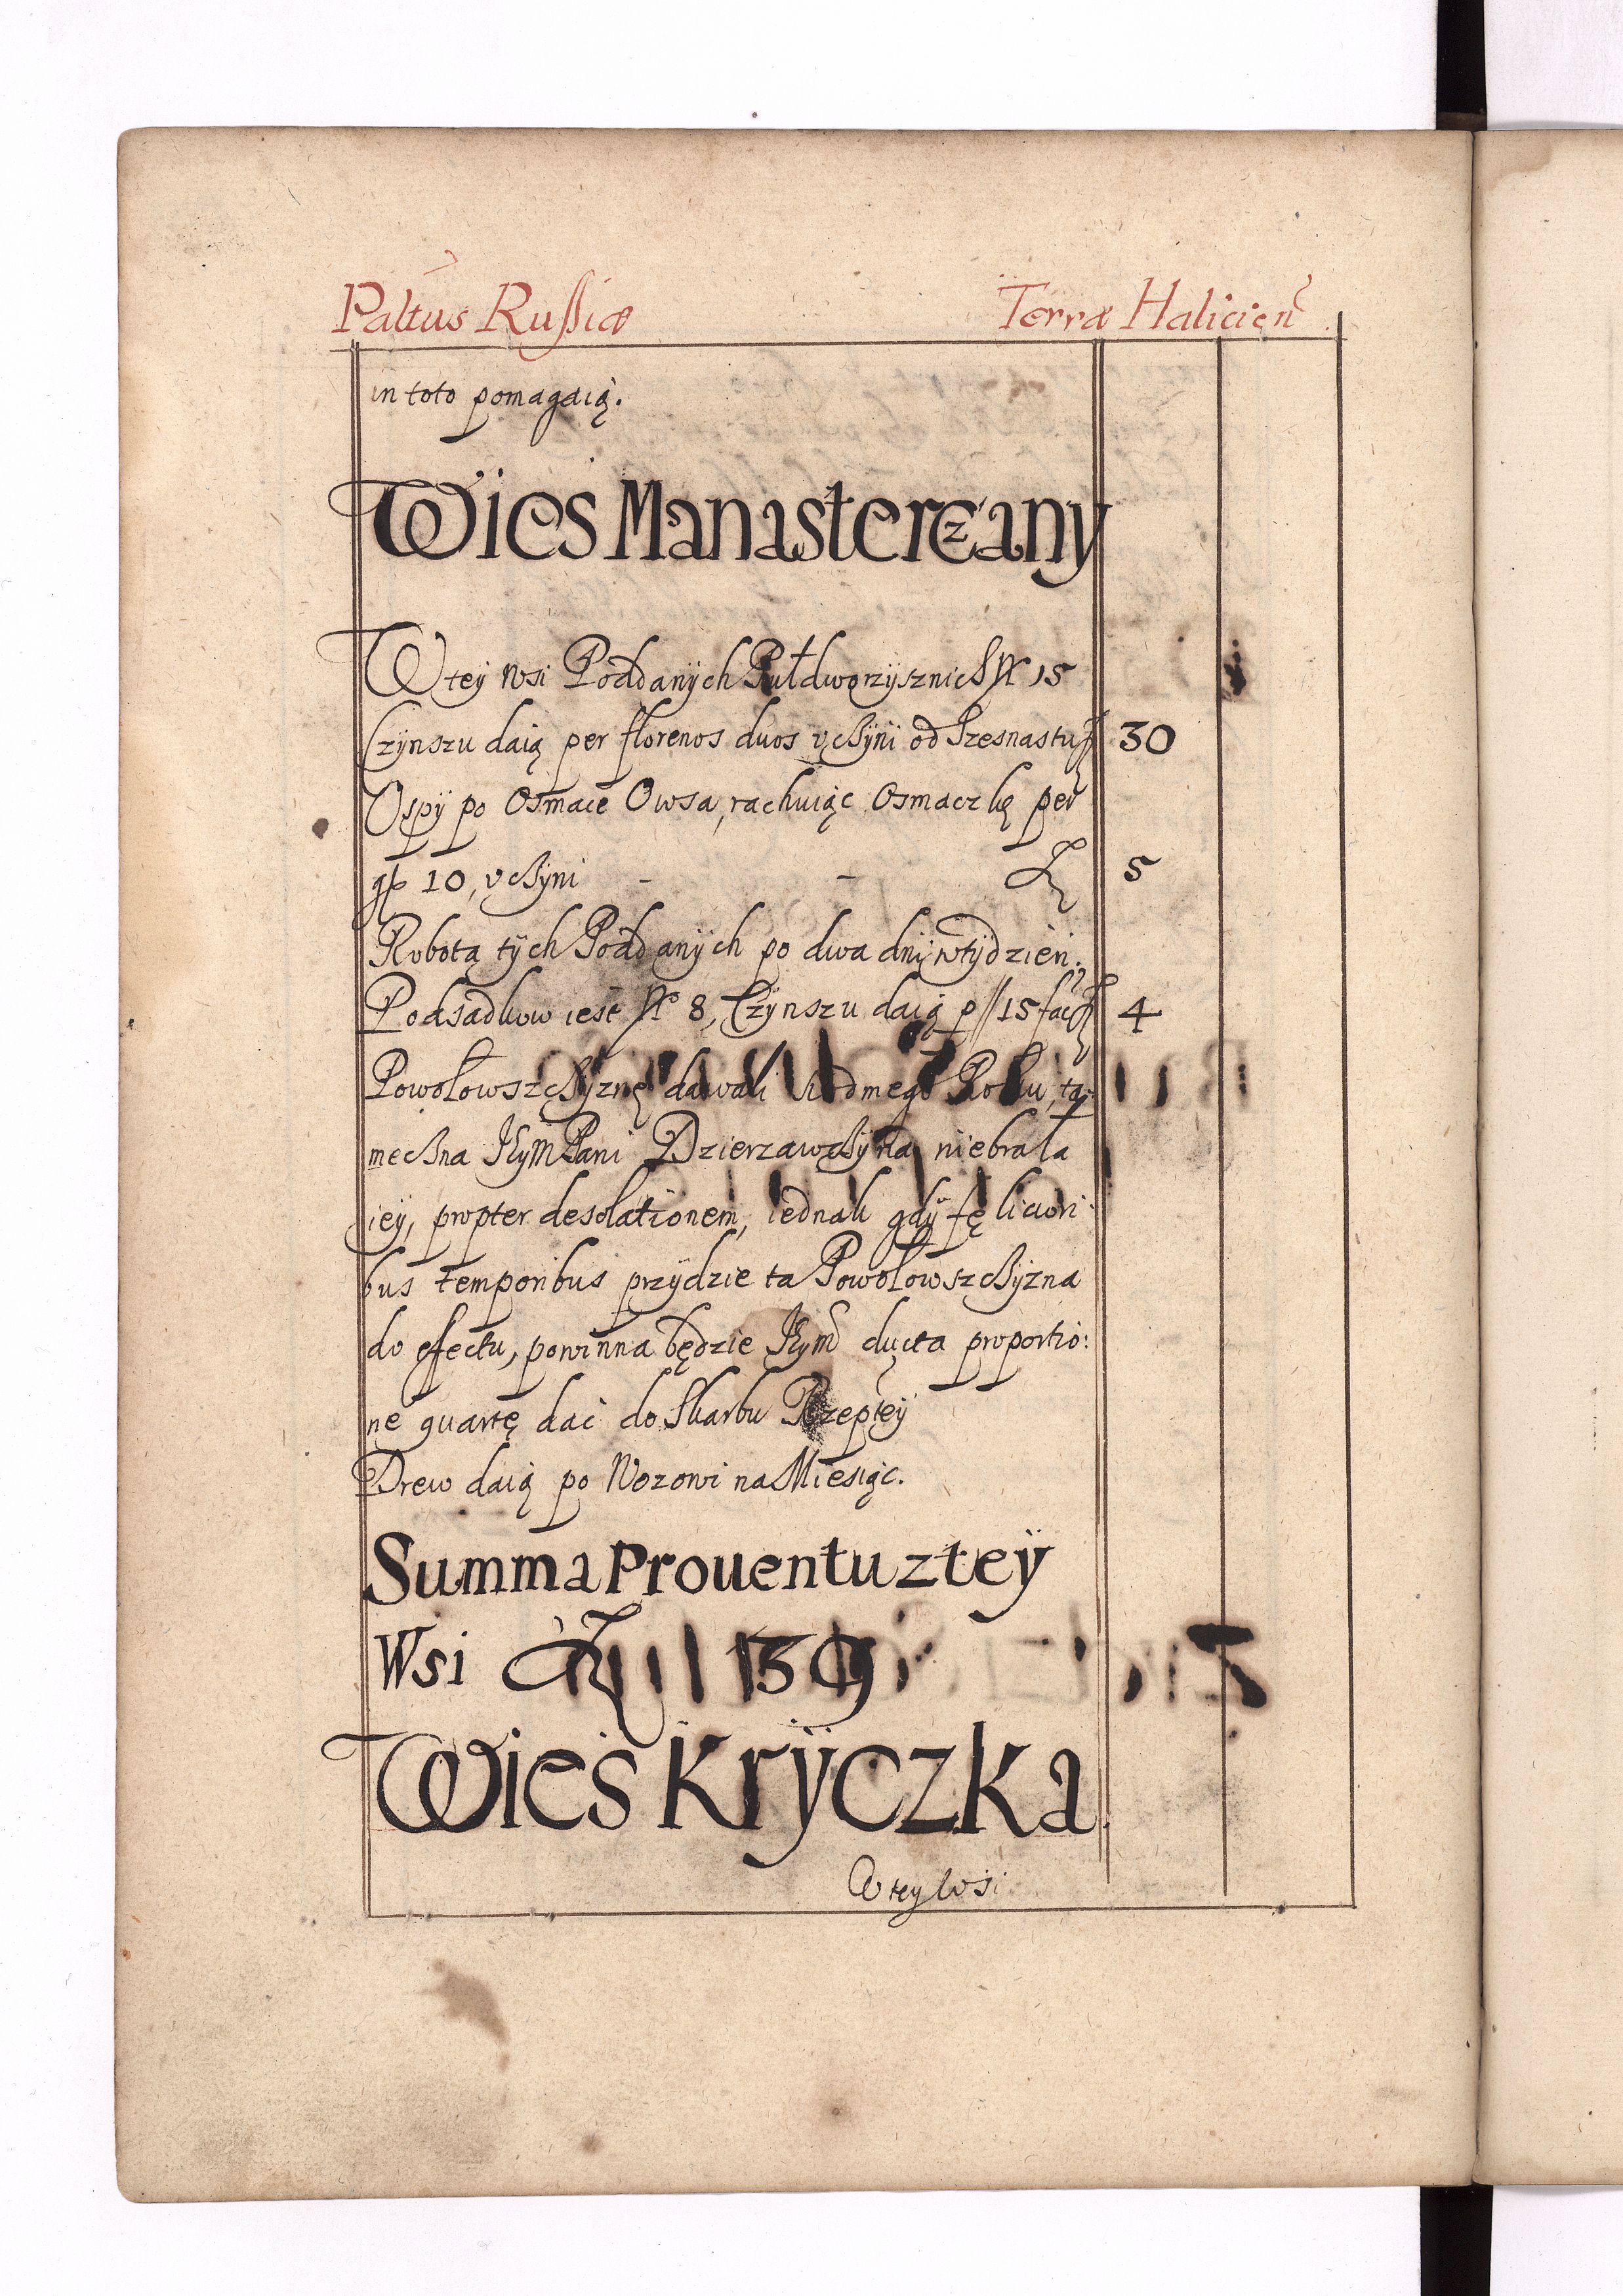 Paltus Russiæ Terræ Halicien
in toto pomagaią.
Wies Manasterczany
W tey Wsi Poddanÿch Pułdworzÿsznich N 15
Czÿnszu daią per florenos duos vcżÿni od Szesnastu fl 30
Ospÿ po Osmace Owsa, rachuiąc Osmaczkę per
gr 10, vcżyni - - fl 5
Robotą tÿch Poddanÿch po dwa dnÿ wtÿdzien.
Podsadkow iest N 8, Czÿnszu daią p 15 fac fl 4
Powołowszcżÿznę dawali siodmego Roku, ta:
meczna JeyM Pani Dzierzawcżÿna niebrała
iey, propter desolationem, iednak gdÿ fęliciori:
bus temporibus przÿdzie ta Powołowszcżÿzna
do efectu, powinna będzie Jeym ducta proportio:
ne quartę dać do Skarbu Rzeptey
Drew daią po Wozowi na Miesiąc.
Summa Prouentu z teÿ
Wsi fl 39
Wies Krÿczka
W tey Wsi